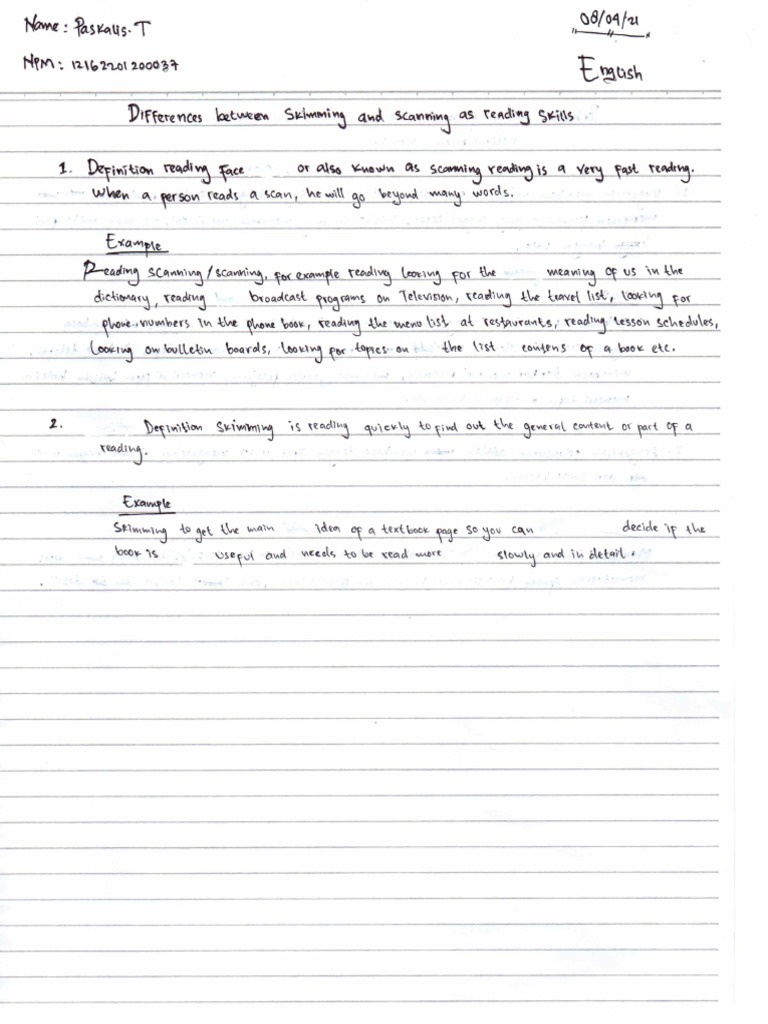 Name : Paskalis. T
08/04/21
NPM : 12162201200037
English
Differences between Skimming and scanning as reading skills
1. Definition reading face or also known as scanning reading is a very fast reading.
When a person reads a scan, he will go beyond many words.
Example
Reading scanning/scanning, for example reading looking for the meaning of us in the
dictionary, reading broadcast programs on Television, reading the travel list, looking for
phone numbers in the phone book, reading the menu list at restaurants, reading lesson schedules,
Looking on bulletin boards, looking for topics on the list contens of a book etc.
2. Definition Skimming is reading quickly to find out the general content or part of a
reading.
Example
Skimming to get the main idea of a textbook page so you can decide if the
book is useful and needs to be read more slowly and in detail.